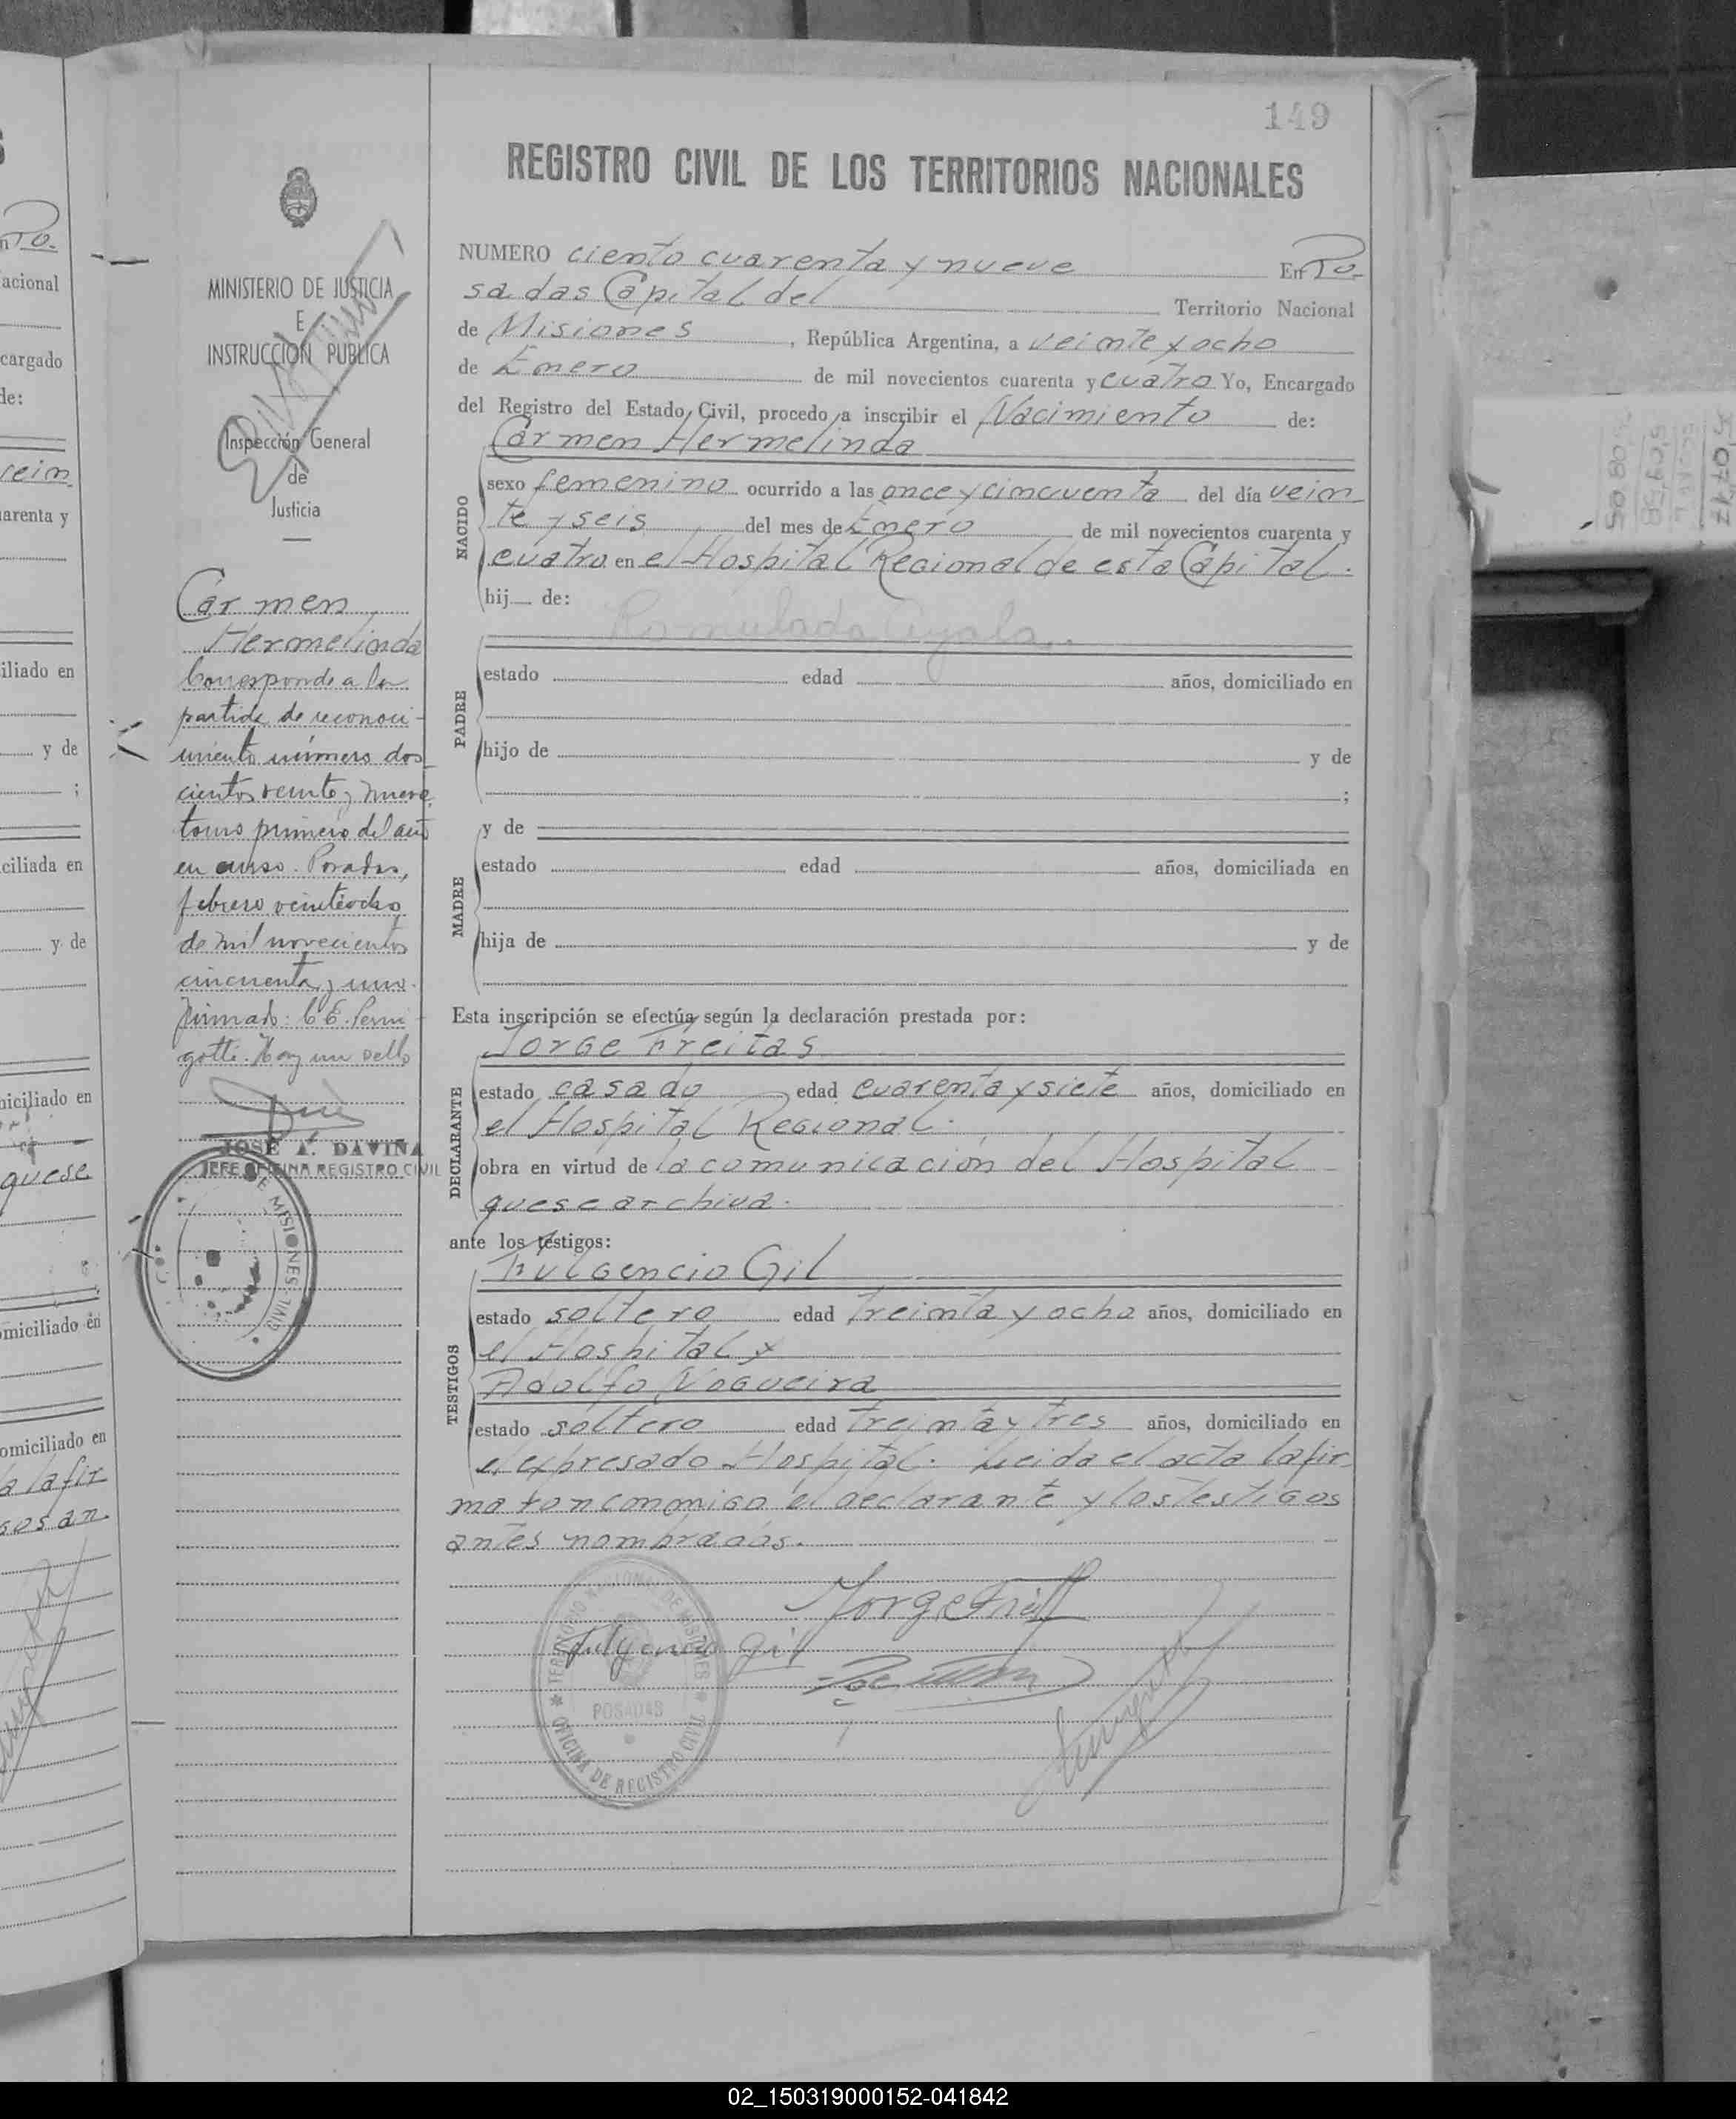 149
REGISTRO CIVIL DE LOS TERRITORIOS NACIONALES
NUMERO ciento cuarenta y nueve En Po-
sadas Capital del Territorio Nacional
de Misiones, República Argentina, a veinte y ocho
de Enero de mil novecientos cuarenta y cuatro Yo, Encargado
del Registro del Estado Civil, procedo a inscribir el Nacimiento de:
Carmen Hermelinda
NACIDO
sexo femenino ocurrido a las once y cincuenta del día vein
te y seis del mes de Enero de mil novecientos cuarenta y
cuatro en el Hospital Regional de esta Capital.
hij de:
Romulada Ayala
PADRE
estado edad años, domiciliado en
hijo de y de
;
y de
MADRE
estado edad años, domiciliada en
hija de y de
Esta inscripción se efectúa según la declaración prestada por:
Jorge Freitas
DECLARANTE
estado casado edad cuarenta y siete años, domiciliado en
el Hospital Regional.
obra en virtud de la comunicación del Hospital
que se archiva.
ante los testigos:
Fulgencio Gil
TESTIGOS
estado soltero edad treinta y ocho años, domiciliado en
el Hospital y
Adolfo Nogueira
estado soltero edad treinta y tres años, domiciliado en
el expresado Hospital. Leida el acta la fir
maron conmigo el declarante y los testigos
antes nombrados.
Jorge Freit
Fulgencio Gil
TERRITORIO NACIONAL DE MISIONES
POSADAS
OFICINA DE REGISTRO CIVIL
MINISTERIO DE JUSTICIA
E
INSTRUCCIÓN PUBLICA
Inspección General
de
Justicia
Carmen
Hermelinda
Corresponde a la
partida de reconoci-
miento número dos-
cientos veinte y nueve
tomo primero del año
en curso. Posadas,
febrero veinteocho
de mil novecientos
cincuenta y uno.
Firmado: C E. Perni-
gotti. Hay un sello
JOSÉ A. DAVIÑA
JEFE OFICINA REGISTRO CIVIL
DE MISIONES
CIVIL
Po.
acional
cargado
de:
vein
arenta y
iliado en
y de
;
ciliada en
y de
iciliado en
quese
omiciliado en
omiciliado en
la fir
gos an
02_150319000152-041842